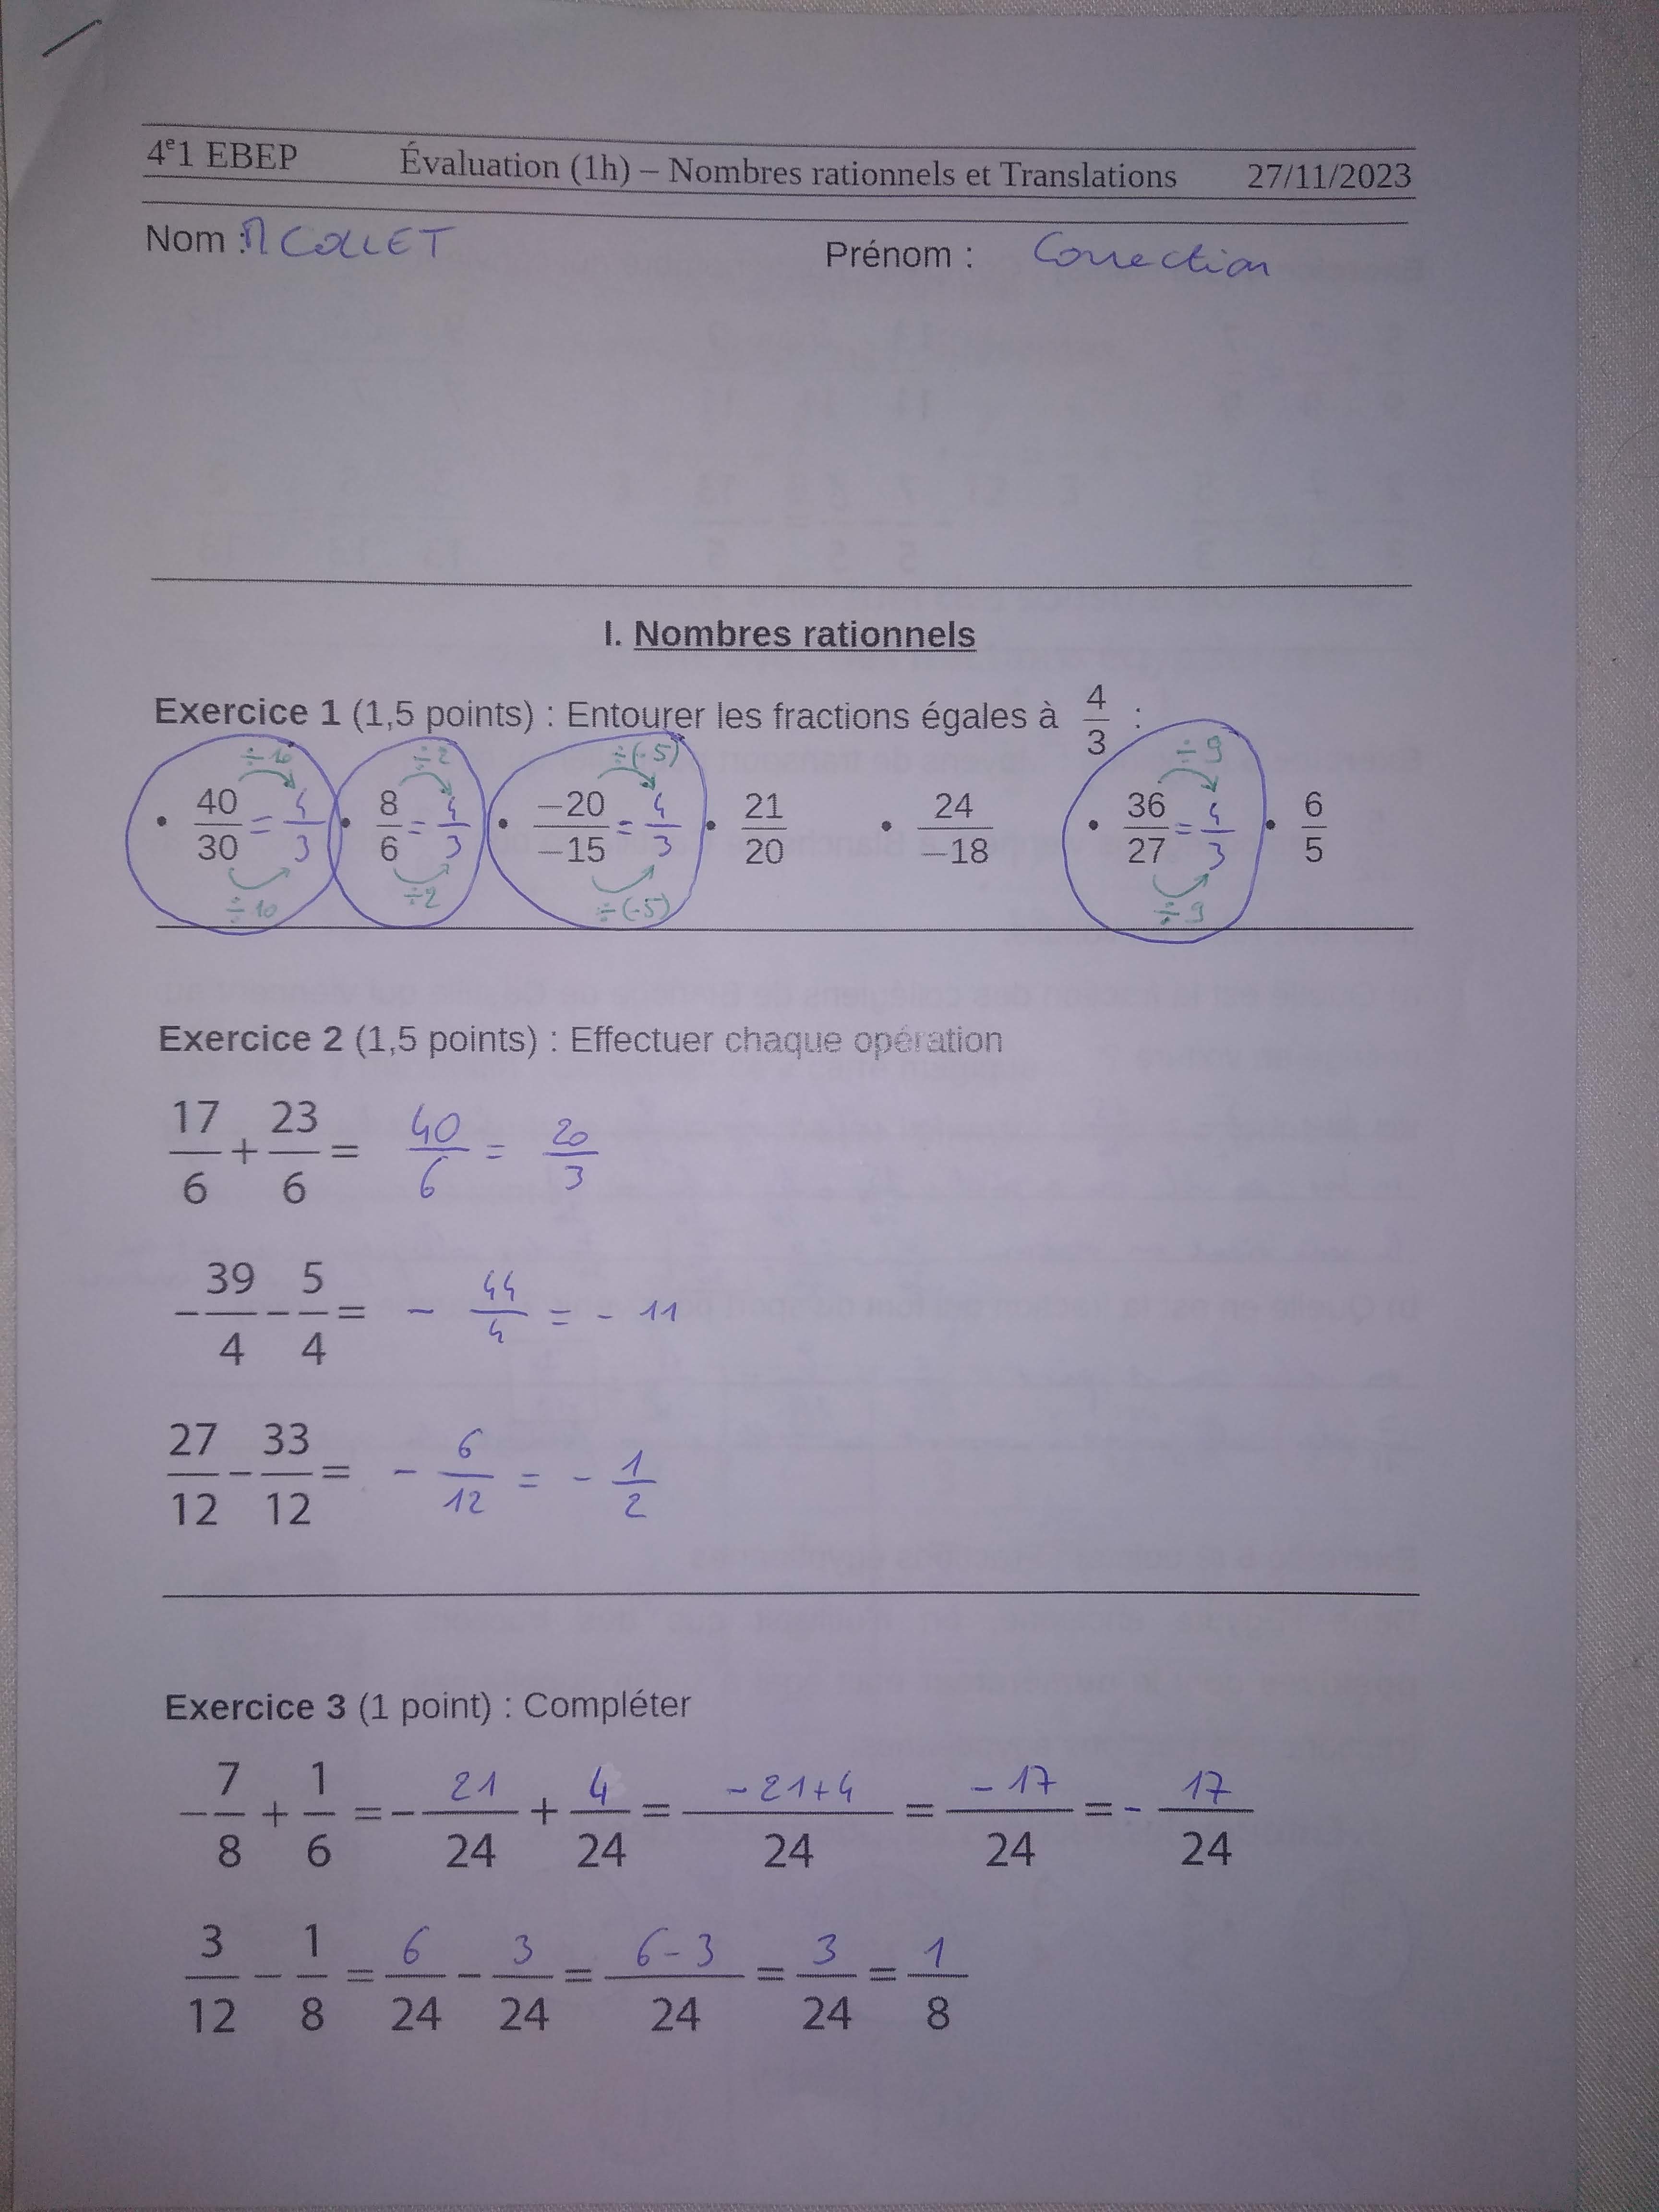 4e1 EBEP Évaluation (1h) – Nombres rationnels et Translations 27/11/2023
Nom : M COLLET Prénom : Correction
I. Nombres rationnels
Exercice 1 (1,5 points) : Entourer les fractions égales à 4/3 :
÷10 ÷2 ÷(-5) ÷9
• 40/30 = 4/3 • 8/6 = 4/3 • −20/−15 = 4/3 • 21/20 • 24/−18 • 36/27 = 4/3 • 6/5
÷10 ÷2 ÷(-5) ÷9
Exercice 2 (1,5 points) : Effectuer chaque opération
17/6 + 23/6 = 40/6 = 20/3
−39/4 − 5/4 = − 44/4 = − 11
27/12 − 33/12 = − 6/12 = − 1/2
Exercice 3 (1 point) : Compléter
−7/8 + 1/6 = − 21/24 + 4/24 = −21+4/24 = −17/24 = − 17/24
3/12 − 1/8 = 6/24 − 3/24 = 6−3/24 = 3/24 = 1/8